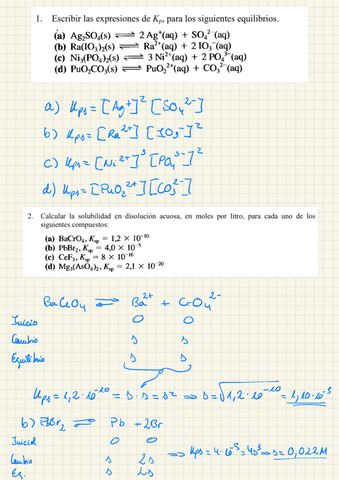 1. Escribir las expresiones de Kps para los siguientes equilibrios.
(a) Ag₂SO₄(s) ⇌ 2 Ag⁺(aq) + SO₄²⁻(aq)
(b) Ra(IO₃)₂(s) ⇌ Ra²⁺(aq) + 2 IO₃⁻(aq)
(c) Ni₃(PO₄)₂(s) ⇌ 3 Ni²⁺(aq) + 2 PO₄³⁻(aq)
(d) PuO₂CO₃(s) ⇌ PuO₂²⁺(aq) + CO₃²⁻(aq)
a) Kps = [Ag⁺]² [SO₄²⁻]
b) Kps = [Ra²⁺] [IO₃⁻]²
c) Kps = [Ni²⁺]³ [PO₄³⁻]²
d) Kps = [PuO₂²⁺] [CO₃²⁻]
2. Calcular la solubilidad en disolución acuosa, en moles por litro, para cada uno de los
siguientes compuestos:
(a) BaCrO₄, Ksp = 1,2 × 10⁻¹⁰
(b) PbBr₂, Ksp = 4,0 × 10⁻⁵
(c) CeF₃, Ksp = 8 × 10⁻¹⁶
(d) Mg₃(AsO₄)₂, Ksp = 2,1 × 10⁻²⁰
BaCrO₄ ⇌ Ba²⁺ + CrO₄²⁻
Inicio 0 0
Cambio s s
Equilibrio s s
Kps = 1,2·10⁻¹⁰ = s·s = s² ⇒ s = √1,2·10⁻¹⁰ = 1,10·10⁻⁵
b) PbBr₂ ⇌ Pb + 2Br
Inicial 0 0
Cambio s 2s ⇒ Kps = 4·10⁻⁵ = 4s³ ⇒ s = 0,022M
Eq. s 2s